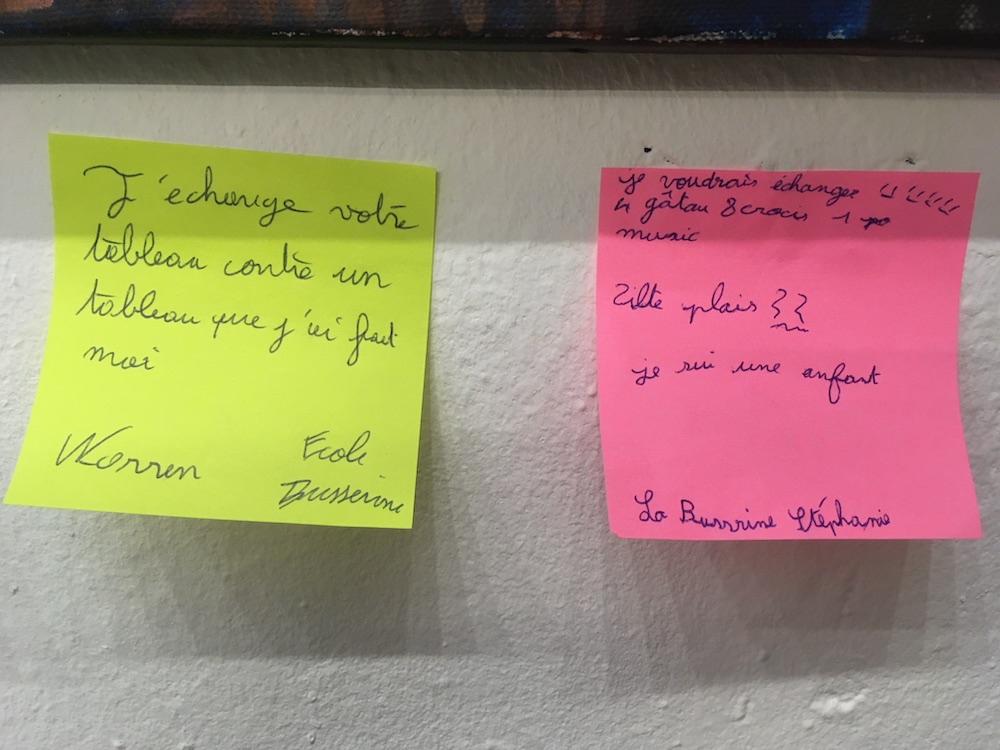 J'échange votre
tableau contre un
tableau que j'ai fait
moi
Warren
Ecole
Busserine
je voudrais échanger
gâtau 8 crocis 1
music
Zilte plais
je sui une anfant
La Bussrine Stéphanie